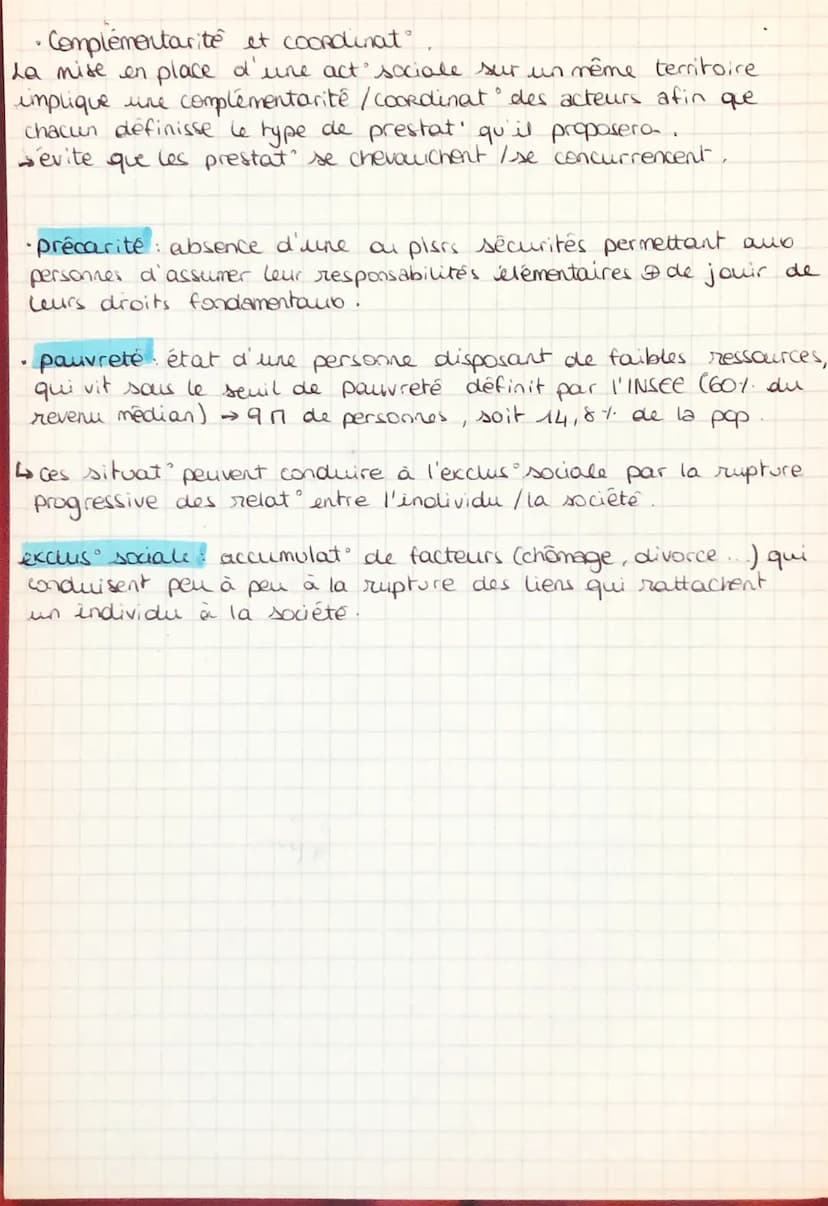 · Complémentarité et coordinat°.
La mise en place d'une act° sociale sur un même territoire
implique une complémentarité / coordinat° des acteurs afin que
chacun définisse le type de prestat° qu'il proposera.
→ évite que les prestat° se chevauchent / se concurrencent.
· précarité : absence d'une ou plsrs sécurités permettant aux
personnes d'assumer leur responsabilités élémentaires ⊕ de jouir de
leurs droits fondamentaux.
· pauvreté : état d'une personne disposant de faibles ressources,
qui vit sous le seuil de pauvreté définit par l'INSEE (60% du
revenu médian) → 9 M de personnes, soit 14,8% de la pop.
↳ ces situat° peuvent conduire à l'exclus° sociale par la rupture
progressive des relat° entre l'individu / la société.
exclus° sociale : accumulat° de facteurs (chômage, divorce...) qui
conduisent peu à peu à la rupture des liens qui rattachent
un individu à la société.